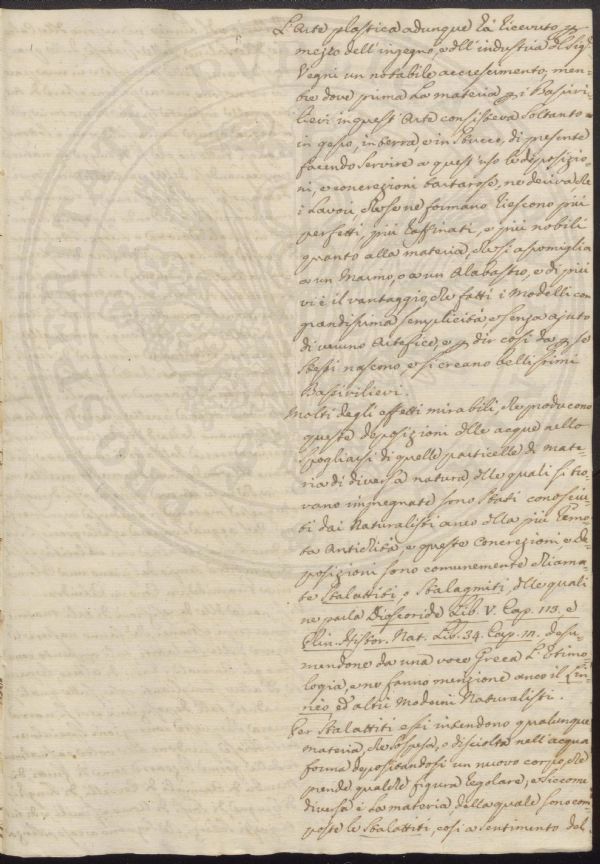 L'Arte plastica adunque hà ricevuto p
mezzo dell'ingegno, e dell'industria del Sig.
Vegni un notabile accrescimento, men-
tre dove prima la materia p i Bassiri-
lievi in quest'Arte consisteva soltanto
in gesso, in terra e in stucco, di presente
facendo servire a quest'uso le deposizio-
ni, e concrezioni tartarose, ne deriva che
i Lavori, che se ne formano riescono più
perfetti, più raffinati, e più nobili
quanto alla materia, che si assomiglia
a un Marmo, o a un Alabastro, e di più
vi è il vantaggio, che fatti i Modelli con
grandissima semplicità, e senza ajuto
di veruno Artefice, e p dir così da p se
stessi nascono, e si creano bellissimi
Bassirilievi.
Molti degli effetti mirabili, che producono
queste deposizioni delle acque nello
spogliarsi di quelle particelle di mate-
ria di diversa natura delle quali si tro-
vano impregnate sono stati conosciu-
ti dai Naturalisti anco della più remo-
ta Antichità, e queste Concrezioni, e de-
posizioni sono comunemente chiama-
te Stalattiti, o Stalagmiti, delle quali
ne parla Dioscoride Lib. V. Cap. 113. e
Plin. Histor. Nat. Lib. 34. Cap. desu-
mendone da una voce Greca l'Etimo
logia, e ne fanno menzione anco il Lin-
neo, ed altri Moderni Naturalisti.
Per Stalattiti si intendono qualunque
materia, che sospesa, o disciolta nell'acqua
forma depositandosi un nuovo corpo, che
prende qualche figura regolare, e siccome
diversa è la materia della quale sono com
poste le Stalattiti, così a sentimento del